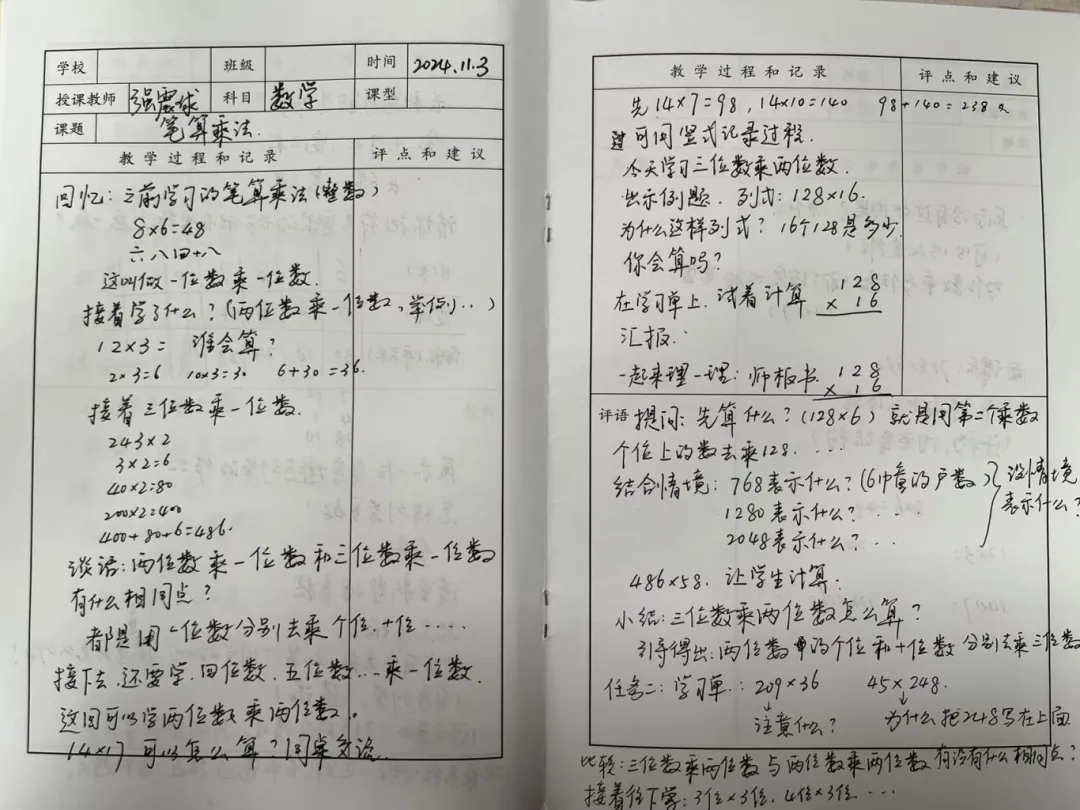 学校 班级 时间 2024.11.3
授课教师 强震球 科目 数学 课型
课题 笔算乘法.
教学过程和记录 评点和建议
回忆：之前学习的笔算乘法(整数)
8×6=48
六八四十八
这叫做一位数乘一位数.
接着学了什么？(两位数乘一位数，举例...)
12×3= 谁会算？
2×3=6 10×3=30 6+30=36.
接着三位数乘一位数.
243×2
3×2=6
40×2=80
200×2=400
400+80+6=486.
谈话：两位数乘一位数和三位数乘一位数
有什么相同点？
都是用一位数分别去乘个位，十位....
接下去，还要学，四位数，五位数...乘一位数.
这用可以学两位数乘两位数。
14×17 可以怎么算？同桌交流.
教学过程和记录 评点和建议
先14×7=98，14×10=140 98+140=238。
可用竖式记录过程.
今天学习三位数乘两位数.
出示例题. 列式：128×16.
为什么这样列式？16个128是多少.
你会算吗？
在学习单上，试着计算 128
×16
汇报.
一起来理一理：师板书 128
×16
评语 提问：先算什么？(128×6) 就是用第二个乘数
个位上的数去乘128. ...
结合情境：768表示什么？(6幢的户数) 没情境
1280表示什么？... 表示什么？
2048表示什么？...
486×58. 让学生计算.
小结：三位数乘两位数怎么算？
引导得出：两位数中的个位和十位数分别去乘三位数
任务二：学习单：209×36 45×248.
注意什么？ 为什么把248写在上面
比较：三位数乘两位数与两位数乘两位数有没有什么相同点？
接着往下学：3位×3位，4位×3位....